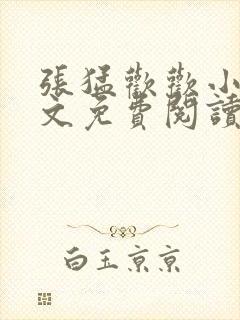 張猛歡歡小
文免費閱讀
白玉京京